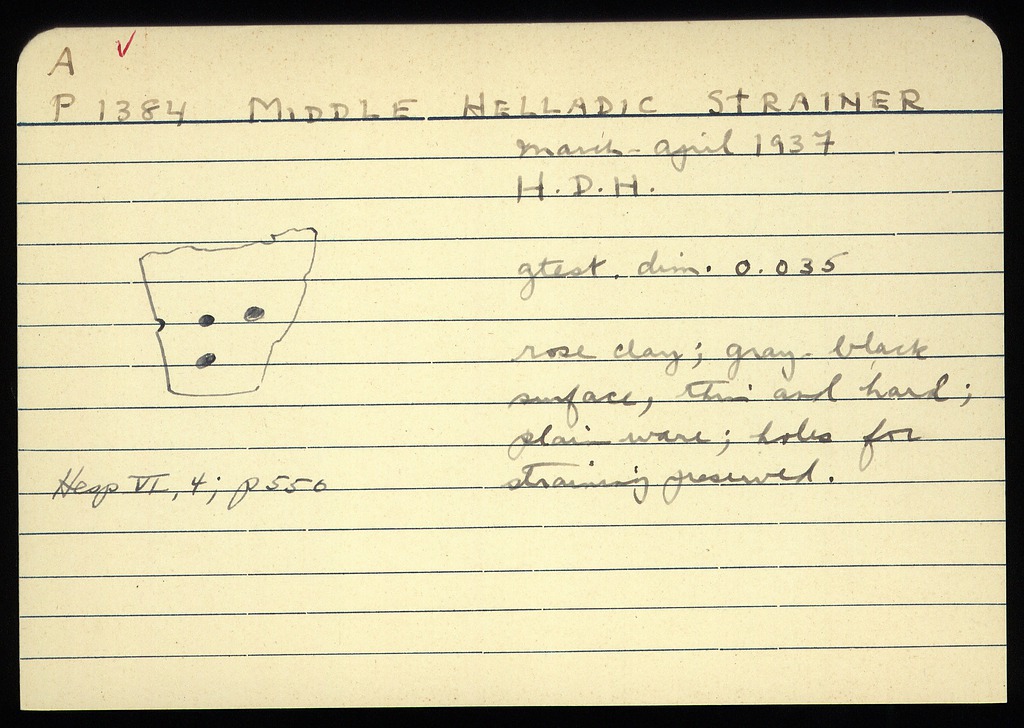 A ✓
P 1384 MIDDLE HELLADIC STRAINER
march - april 1937
H.D.H.
gtest. dim. 0.035
rose clay; gray-black
surface, thin and hard;
plain ware; holes for
straining preserved.
Hesp VI, 4; p 550